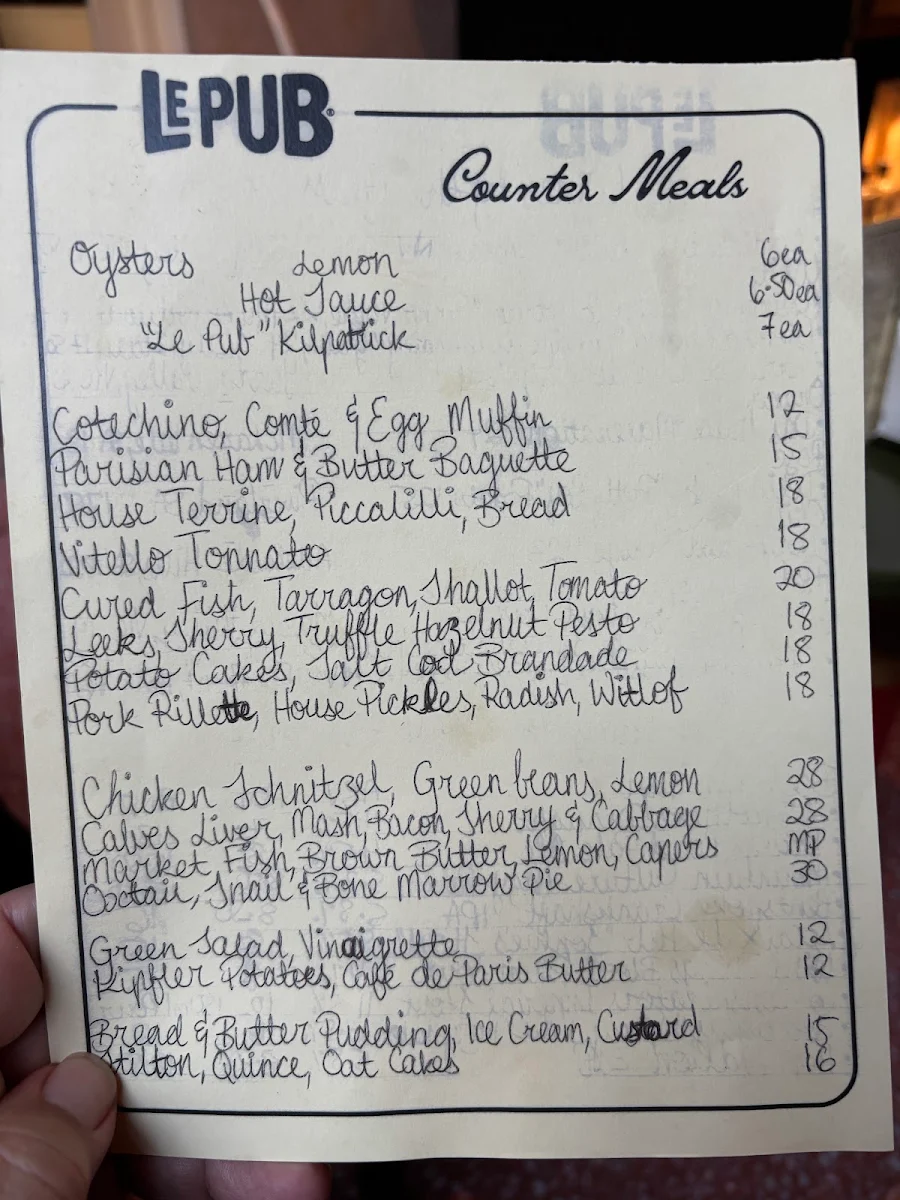 LE PUB
Counter Meals
Oysters Lemon 6ea
Hot Sauce 6.50ea
"Le Pub" Kilpatrick 7ea
Cotechino, Comté & Egg Muffin 12
Parisian Ham & Butter Baguette 15
House Terrine, Piccalilli, Bread 18
Vitello Tonnato 18
Cured Fish, Tarragon, Shallot, Tomato 20
Leeks, Sherry, Truffle Hazelnut Pesto 18
Potato Cakes, Salt Cod Brandade 18
Pork Rillette, House Pickles, Radish, Witlof 18
Chicken Schnitzel, Green beans, Lemon 28
Calves Liver, Mash, Bacon, Sherry & Cabbage 28
Market Fish, Brown Butter, Lemon, Capers MP
Oxtail, Snail & Bone Marrow Pie 30
Green Salad, Vinaigrette 12
Kipfler Potatoes, Café de Paris Butter 12
Bread & Butter Pudding, Ice Cream, Custard 15
Stilton, Quince, Oat Cakes 16